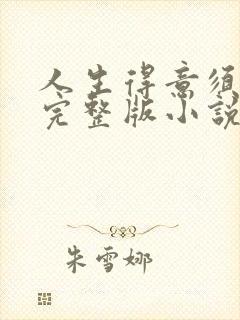 人生得意须
完整版小說
朱雪娜